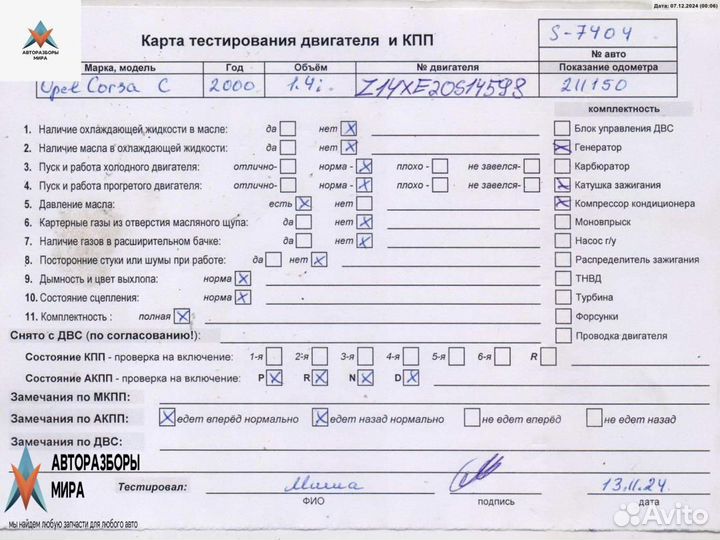 Дата: 07.12.2024 (00:06)
АВТОРАЗБОРЫ
МИРА
Карта тестирования двигателя и КПП
S-7404
№ авто
Марка, модель Год Объём № двигателя Показание одометра
Opel Corsa C 2000 1.4i Z14XE20S14598 211150
комплектность
1. Наличие охлаждающей жидкости в масле: да нет Блок управления ДВС
2. Наличие масла в охлаждающей жидкости: да нет Генератор
3. Пуск и работа холодного двигателя: отлично- норма - плохо - не завелся- Карбюратор
4. Пуск и работа прогретого двигателя: отлично- норма - плохо - не завелся- Катушка зажигания
5. Давление масла: есть нет Компрессор кондиционера
6. Картерные газы из отверстия масляного щупа: да нет Моновпрыск
7. Наличие газов в расширительном бачке: да нет Насос г/у
8. Посторонние стуки или шумы при работе: да нет Распределитель зажигания
9. Дымность и цвет выхлопа: норма ТНВД
10. Состояние сцепления: норма Турбина
11. Комплектность : полная Форсунки
Снято с ДВС (по согласованию!): Проводка двигателя
Состояние КПП - проверка на включение: 1-я 2-я 3-я 4-я 5-я 6-я R
Состояние АКПП - проверка на включение: P R N D
Замечания по МКПП:
Замечания по АКПП: едет вперёд нормально едет назад нормально не едет вперёд не едет назад
Замечания по ДВС:
АВТОРАЗБОРЫ
МИРА
мы найдем любую запчасти для любого авто
Тестировал: Миша 13.11.24
ФИО подпись дата
Avito